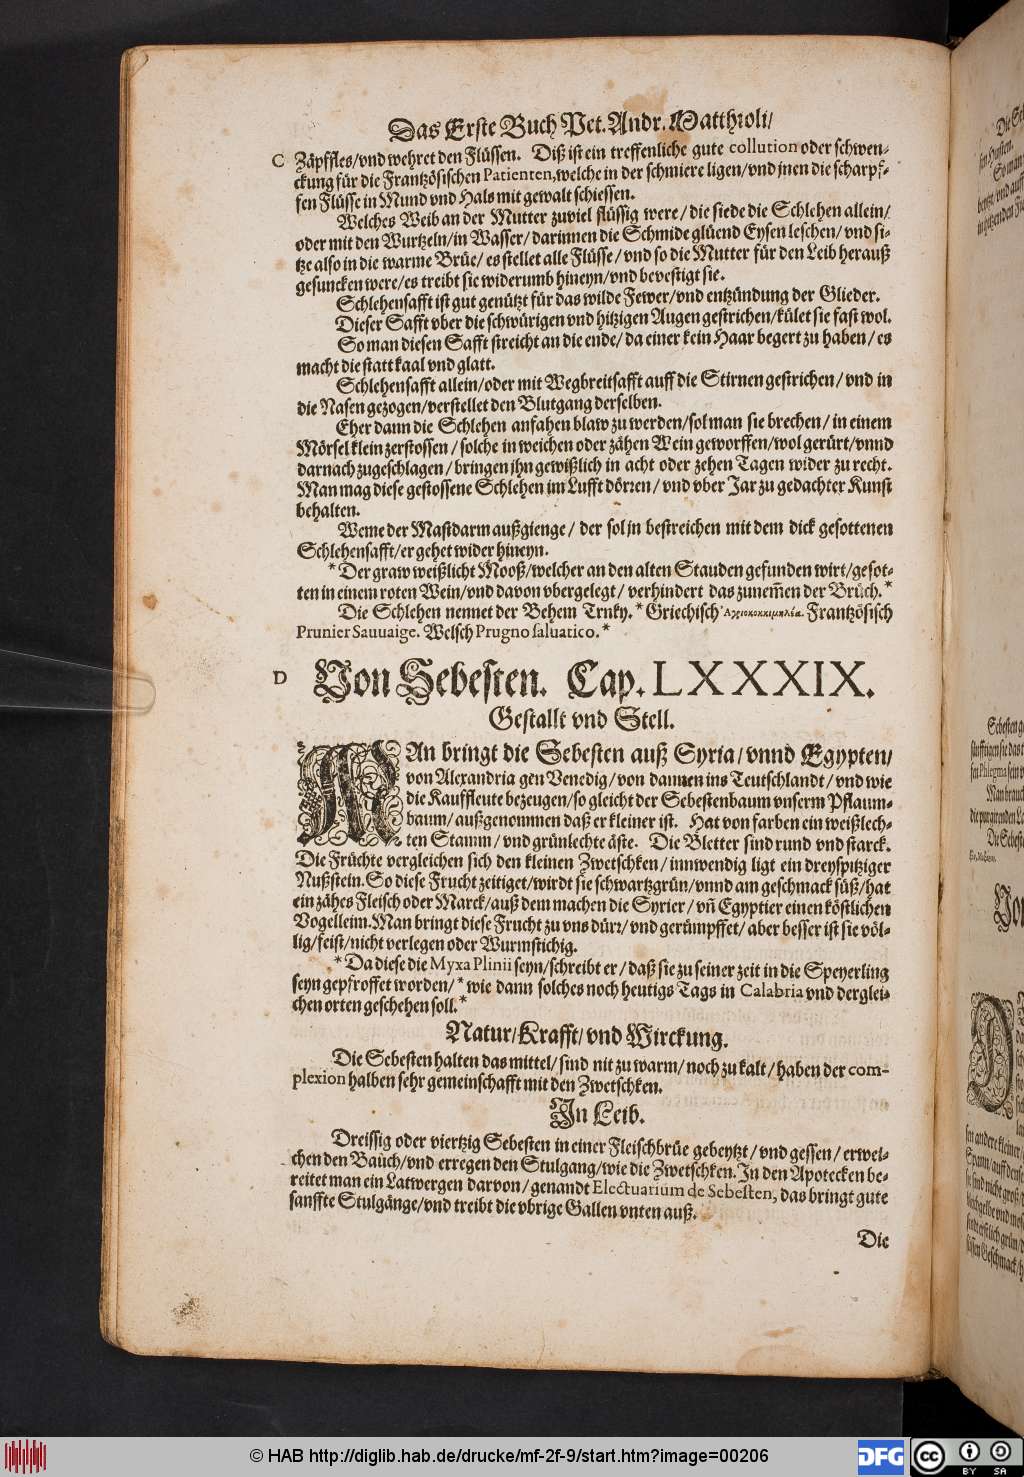 Das Erste Buch Pet. Andr. Matthioli/
C Zäpffles/vnd wehret den Flüssen. Diß ist ein treffenliche gute collution oder schwen-
ckung für die Frantzösischen Patienten, welche in der schmiere ligen/vnd jnen die scharpf-
fen Flüsse in Mund vnd Hals mit gewalt schiessen.
Welches Weib an der Mutter zuviel flüssig were/ die siede die Schlehen allein/
oder mit den Wurtzeln/in Wasser/ darinnen die Schmide glüend Eysen leschen/ vnd si-
tze also in die warme Brüe/ es stellet alle Flüsse/ vnd so die Mutter für den Leib herauß
gesuncken were/es treibt sie widerumb hineyn/vnd bevestigt sie.
Schlehensafft ist gut genützt für das wilde Fewer/vnd entzündung der Glieder.
Dieser Safft vber die schwürigen vnd hitzigen Augen gestrichen/kület sie fast wol.
So man diesen Safft streicht an die ende/ da einer kein Haar begert zu haben/ es
macht die statt kaal vnd glatt.
Schlehensafft allein/oder mit Wegbreitsafft auff die Stirnen gestrichen/ vnd in
die Nasen gezogen/verstellet den Blutgang derselben.
Eher dann die Schlehen anfahen blaw zu werden/sol man sie brechen/ in einem
Mörsel klein zerstossen/ solche in weichen oder zähen Wein geworffen/wol gerürt/vnnd
darnach zugeschlagen/ bringen jhn gewißlich in acht oder zehen Tagen wider zu recht.
Man mag diese gestossene Schlehen im Lufft dörren/ vnd vber Jar zu gedachter Kunst
behalten.
Weme der Mastdarm außgienge/ der sol jn bestreichen mit dem dick gesottenen
Schlehensafft/er gehet wider hineyn.
* Der graw weißlicht Mooß/welcher an den alten Stauden gefunden wirt/gesot-
ten in einem roten Wein/vnd davon vbergelegt/ verhindert das zunem̃en der Brüch.*
Die Schlehen nennet der Behem Trnky. * Griechisch Ἀγριοκοκκιμηλέα. Frantzösisch
Prunier Sauuaige. Welsch Prugno saluatico.*
D Von Sebesten. Cap. LXXXIX.
Gestallt vnd Stell.
MAn bringt die Sebesten auß Syria/vnnd Egypten/
von Alexandria gen Venedig/von dannen ins Teutschlandt/ vnd wie
die Kauffleute bezeugen/so gleicht der Sebestenbaum vnserm Pflaum-
baum/ außgenommen daß er kleiner ist. Hat von farben ein weißlech-
ten Stamm/ vnd grünlechte äste. Die Bletter sind rund vnd starck.
Die Früchte vergleichen sich den kleinen Zwetschken/ innwendig ligt ein dreyspitziger
Nußstein. So diese Frucht zeitiget/wirdt sie schwartzgrün/vnnd am geschmack süß/hat
ein zähes Fleisch oder Marck/auß dem machen die Syrier/ vñ Egyptier einen köstlichen
Vogelleim. Man bringt diese Frucht zu vns dürr/ vnd gerümpffet/ aber besser ist sie völ-
lig/feist/nicht verlegen oder Wurmstichig.
* Da diese die Myxa Plinii seyn/schreibt er/ daß sie zu seiner zeit in die Speyerling
seyn gepfroffet worden/* wie dann solches noch heutigs Tags in Calabria vnd derglei-
chen orten geschehen soll.*
Natur/Krafft/vnd Wirckung.
Die Sebesten halten das mittel/ sind nit zu warm/ noch zu kalt/ haben der com-
plexion halben sehr gemeinschafft mit den Zwetschken.
In Leib.
Dreissig oder viertzig Sebesten in einer Fleischbrüe gebeytzt/ vnd gessen/ erwei-
chen den Bauch/vnd erregen den Stulgang/wie die Zwetschken. In den Apotecken be-
reitet man ein Latwergen darvon/ genandt Electuarium de Sebesten, das bringt gute
sanffte Stulgänge/vnd treibt die vbrige Gallen vnten auß.
Die
© HAB http://diglib.hab.de/drucke/mf-2f-9/start.htm?image=00206
DFG
cc
BY SA